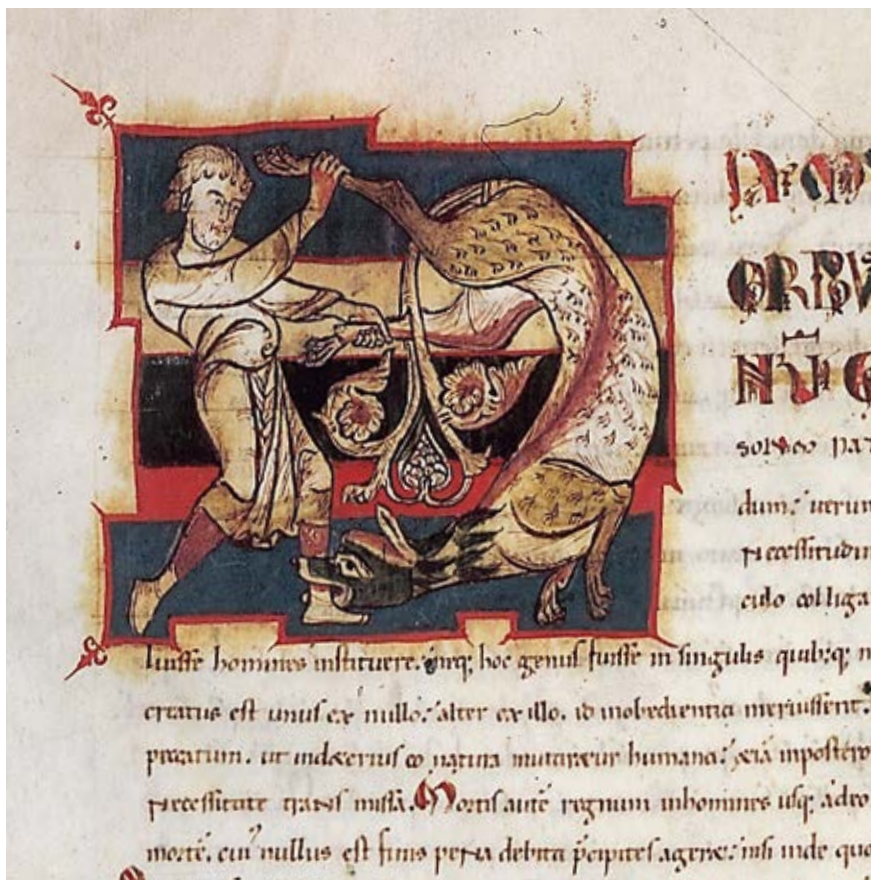 ORIBV
SOLEO NAT
dum. uerum
necessitudin
culo colliga
luisse homines instituere. neq; hoc genus fuisse in singulis quibq; m
creatus est unus ex nullo. alter ex illo. id inobedientia meruissent.
peccatum. ut in deterius eo natura mutaretur humana. etiā in postero
necessitate transmissa. Mortis autē regnum in homines usq; adeo
mortē. cui' nullus est finis pena debita p̄cipites ageret. nisi inde quo